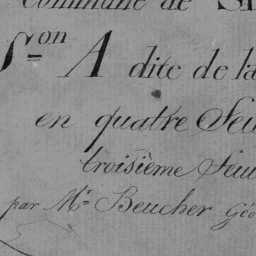 Commune de
S.on A dite de la
en quatre Feu
troisième Feu
par Mr. Beucher Géo